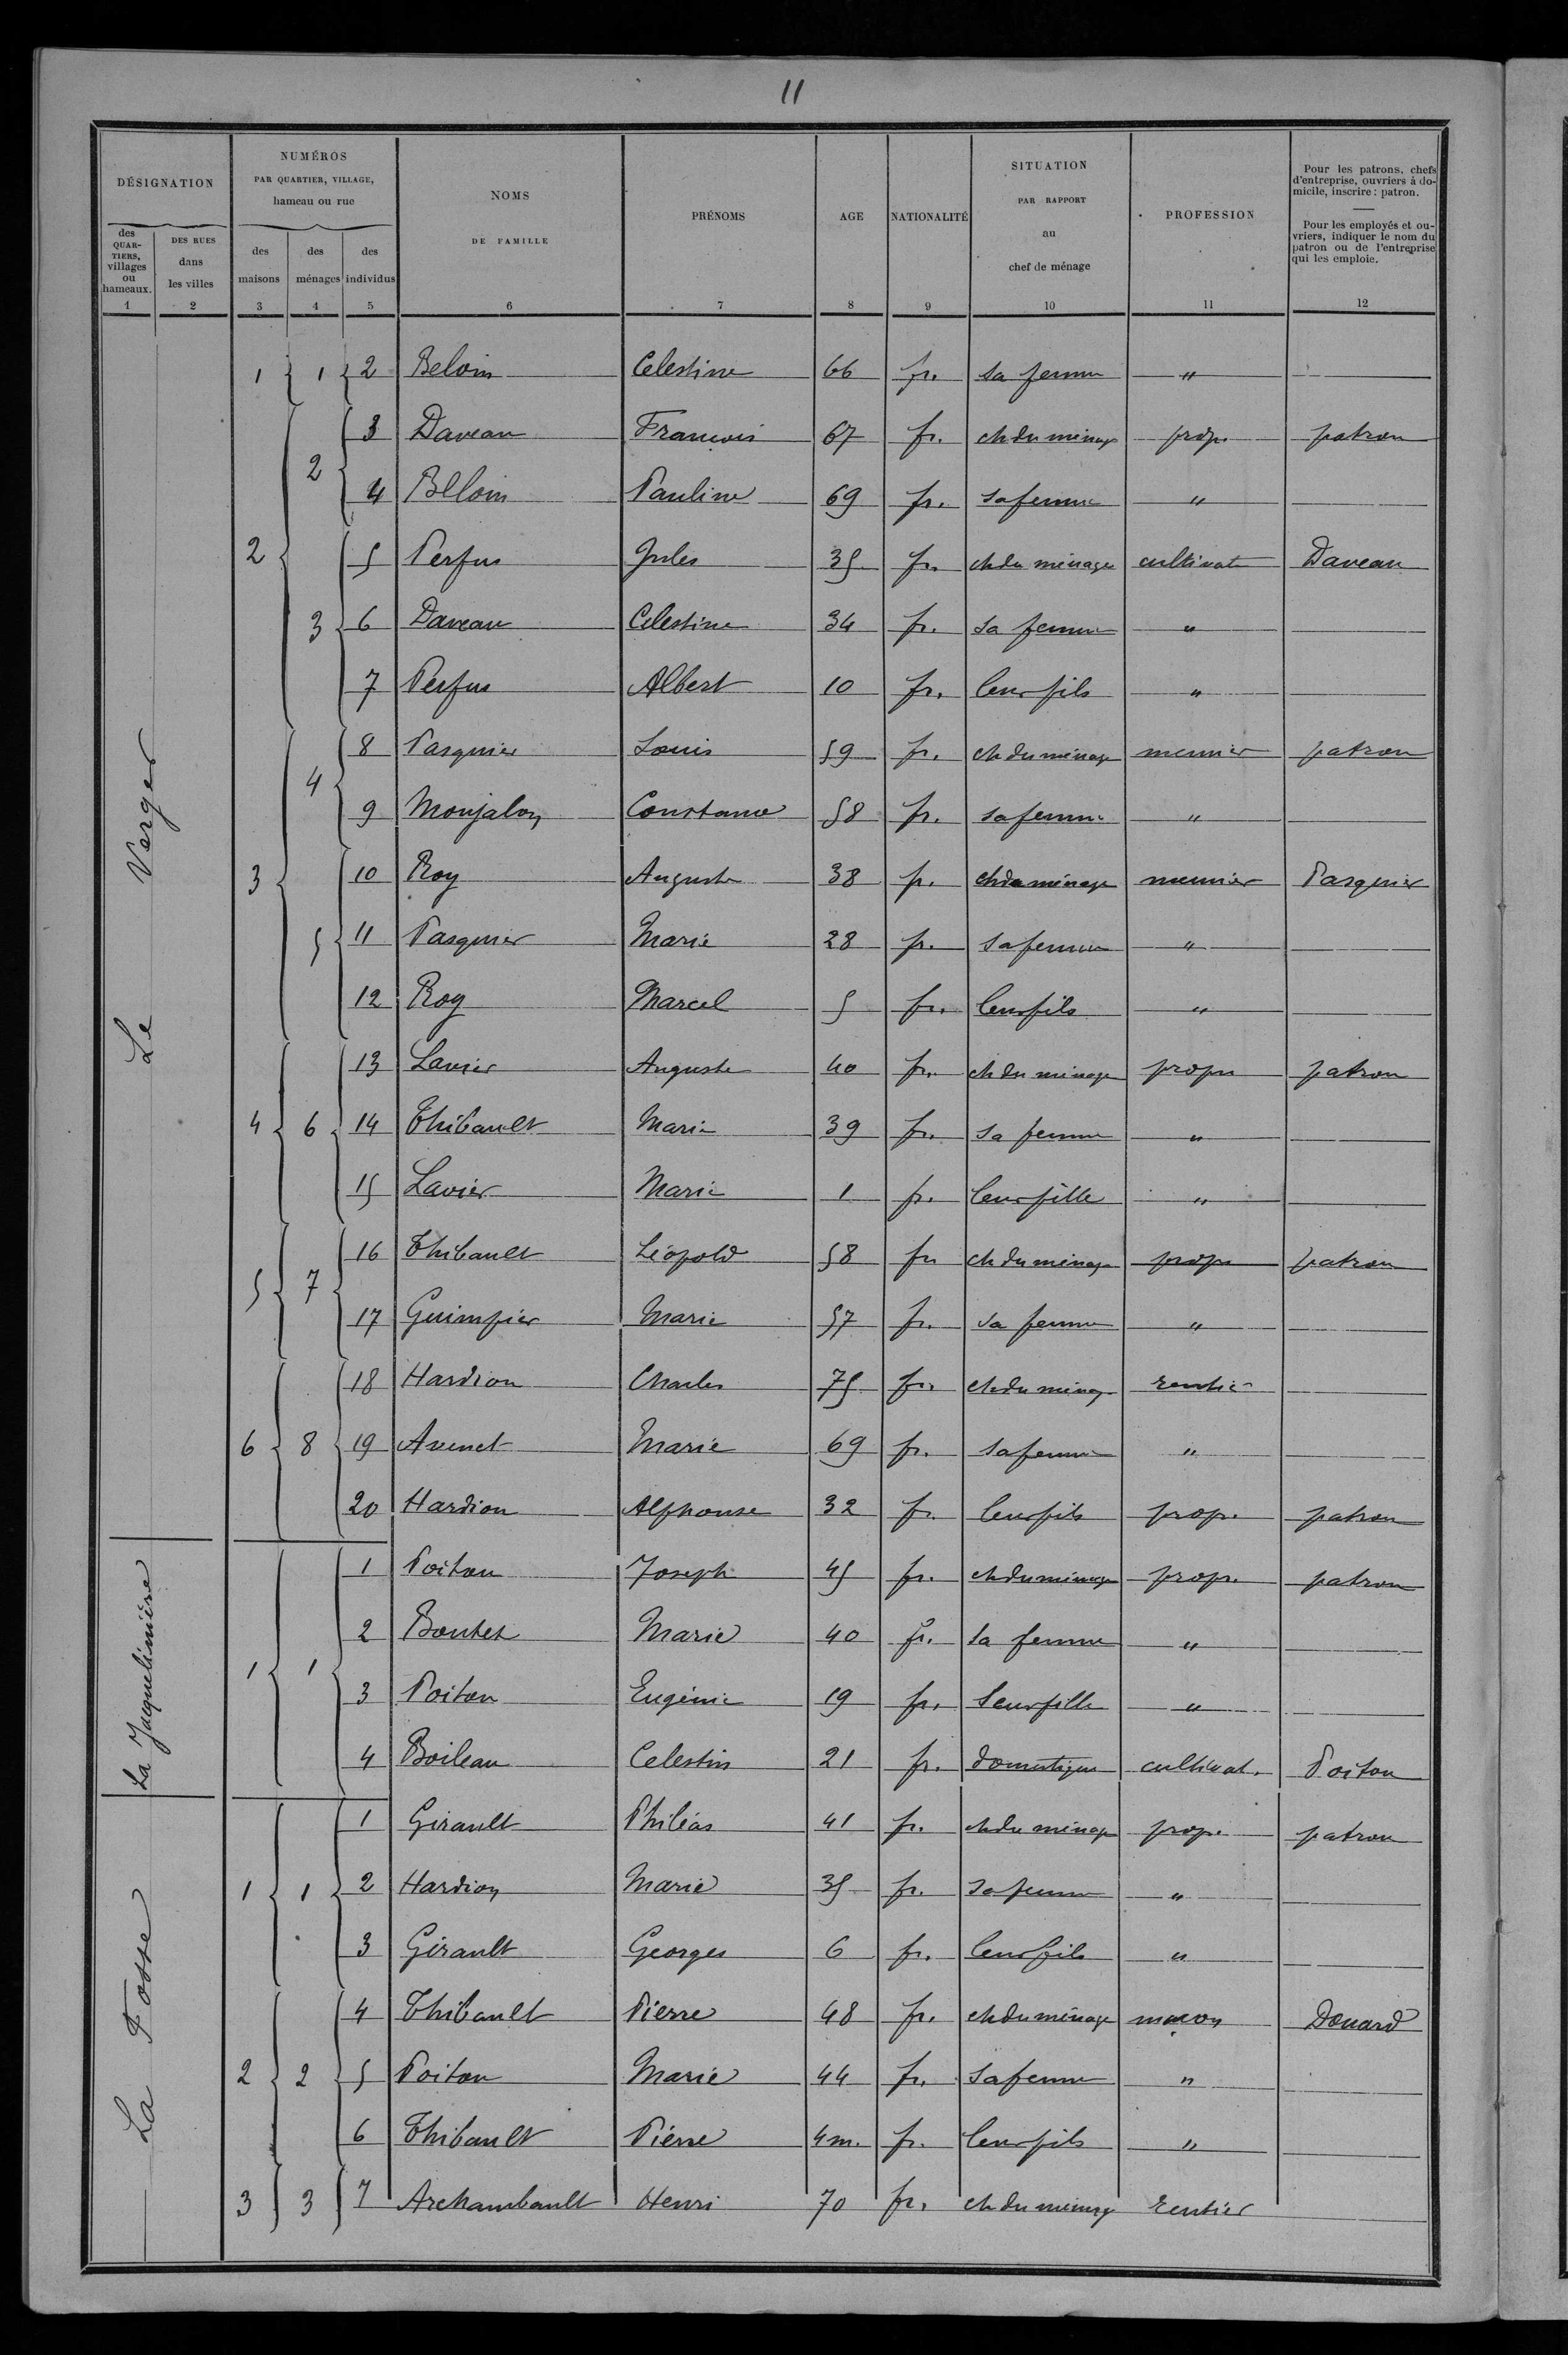 11
DÉSIGNATION
des QUARTIERS, villages ou hameaux.
1
DES RUES dans les villes
2
NUMÉROS PAR QUARTIER, VILLAGE, hameau ou rue
des maisons
3
des ménages
4
des individus
5
NOMS DE FAMILLE
6
PRÉNOMS
7
AGE
8
NATIONALITÉ
9
SITUATION PAR RAPPORT au chef de ménage
10
PROFESSION
11
Pour les patrons, chefs d'entreprise, ouvriers à domicile, inscrire : patron.
Pour les employés et ouvriers, indiquer le nom du patron ou de l'entreprise qui les emploie.
12
Le Verger
1 1 2 Beloin Celestine 66 fr. sa femme "
2 2 3 Daveau François 67 fr. ch du ménage prop. patron
4 Beloin Pauline 69 fr. sa femme "
3 5 Perfus Jules 35 fr. ch du ménage cultivat Daveau
6 Daveau Celestine 34 fr. sa femme "
7 Perfus Albert 10 fr. leur fils "
3 4 8 Pasquier Louis 59 fr. ch du ménage meunier patron
9 Monjalon Constance 58 fr. sa femme "
5 10 Roy Auguste 38 fr. ch du ménage meunier Pasquier
11 Pasquier Marie 28 fr. sa femme "
12 Roy Marcel 5 fr. leur fils "
4 6 13 Lavier Auguste 40 fr. ch du ménage propre patron
14 Thibault Marie 39 fr. sa femme "
15 Lavier Marie 1 fr. leur fille "
5 7 16 Thibault Léopold 58 fr ch du ménage propre patron
17 Guimpier Marie 57 fr. sa femme "
6 8 18 Hardion Charles 75 fr. ch du ménage rentier
19 Avenet Marie 69 fr. sa femme "
20 Hardion Alphonse 32 fr. leur fils prop. patron
La Jaquelinière
1 1 1 Poitou Joseph 45 fr. ch du ménage prop. patron
2 Boutet Marie 40 fr. sa femme "
3 Poitou Eugénie 19 fr. leur fille "
4 Boileau Celestin 21 fr. domestique cultivat. Poitou
La Fosse
1 1 1 Girault Philéas 41 fr. ch du ménage prop. patron
2 Hardion Marie 35 fr. sa femme "
3 Girault Georges 6 fr. leur fils "
2 2 4 Thibault Pierre 48 fr. ch du ménage maçon Douard
5 Poitou Marie 44 fr. sa femme "
6 Thibault Pierre 4 m. fr. leur fils "
3 3 7 Archambault Henri 70 fr. ch du ménage rentier